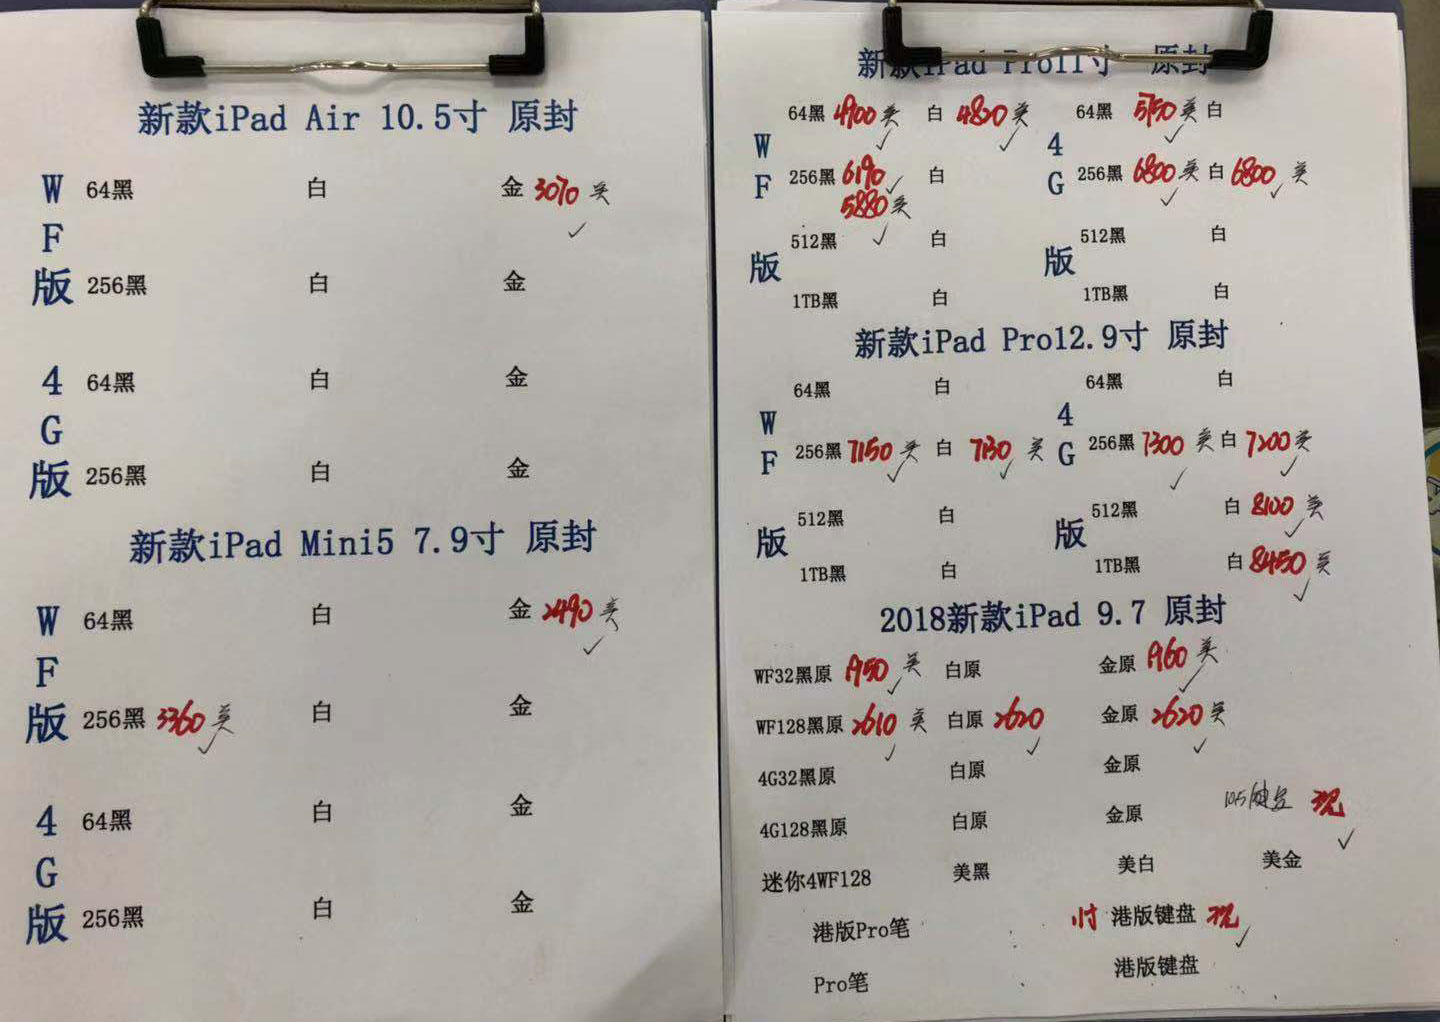 新款iPad Air 10.5寸 原封
WF版
64黑 白 金 3070 美
256黑 白 金
4G版
64黑 白 金
256黑 白 金
新款iPad Mini5 7.9寸 原封
WF版
64黑 白 金 2490 美
256黑 3360 美 白 金
4G版
64黑 白 金
256黑 白 金
新款iPad Pro11寸 原封
WF版 4G版
64黑 4900 美 白 4820 美 64黑 5750 美 白
256黑 6190 白 256黑 6800 美 白 6800 美
5880 美
512黑 白 512黑 白
1TB黑 白 1TB黑 白
新款iPad Pro12.9寸 原封
WF版 4G版
64黑 白 64黑 白
256黑 7150 美 白 7130 美 256黑 7300 美 白 7200 美
512黑 白 512黑 白 8100 美
1TB黑 白 1TB黑 白 8450 美
2018新款iPad 9.7 原封
WF32黑原 1950 美 白原 金原 1960 美
WF128黑原 2610 美 白原 2620 金原 2620 美
4G32黑原 白原 金原
4G128黑原 白原 金原 10.5键盘 现
迷你4WF128 美黑 美白 美金
港版Pro笔 11寸 港版键盘 现
Pro笔 港版键盘